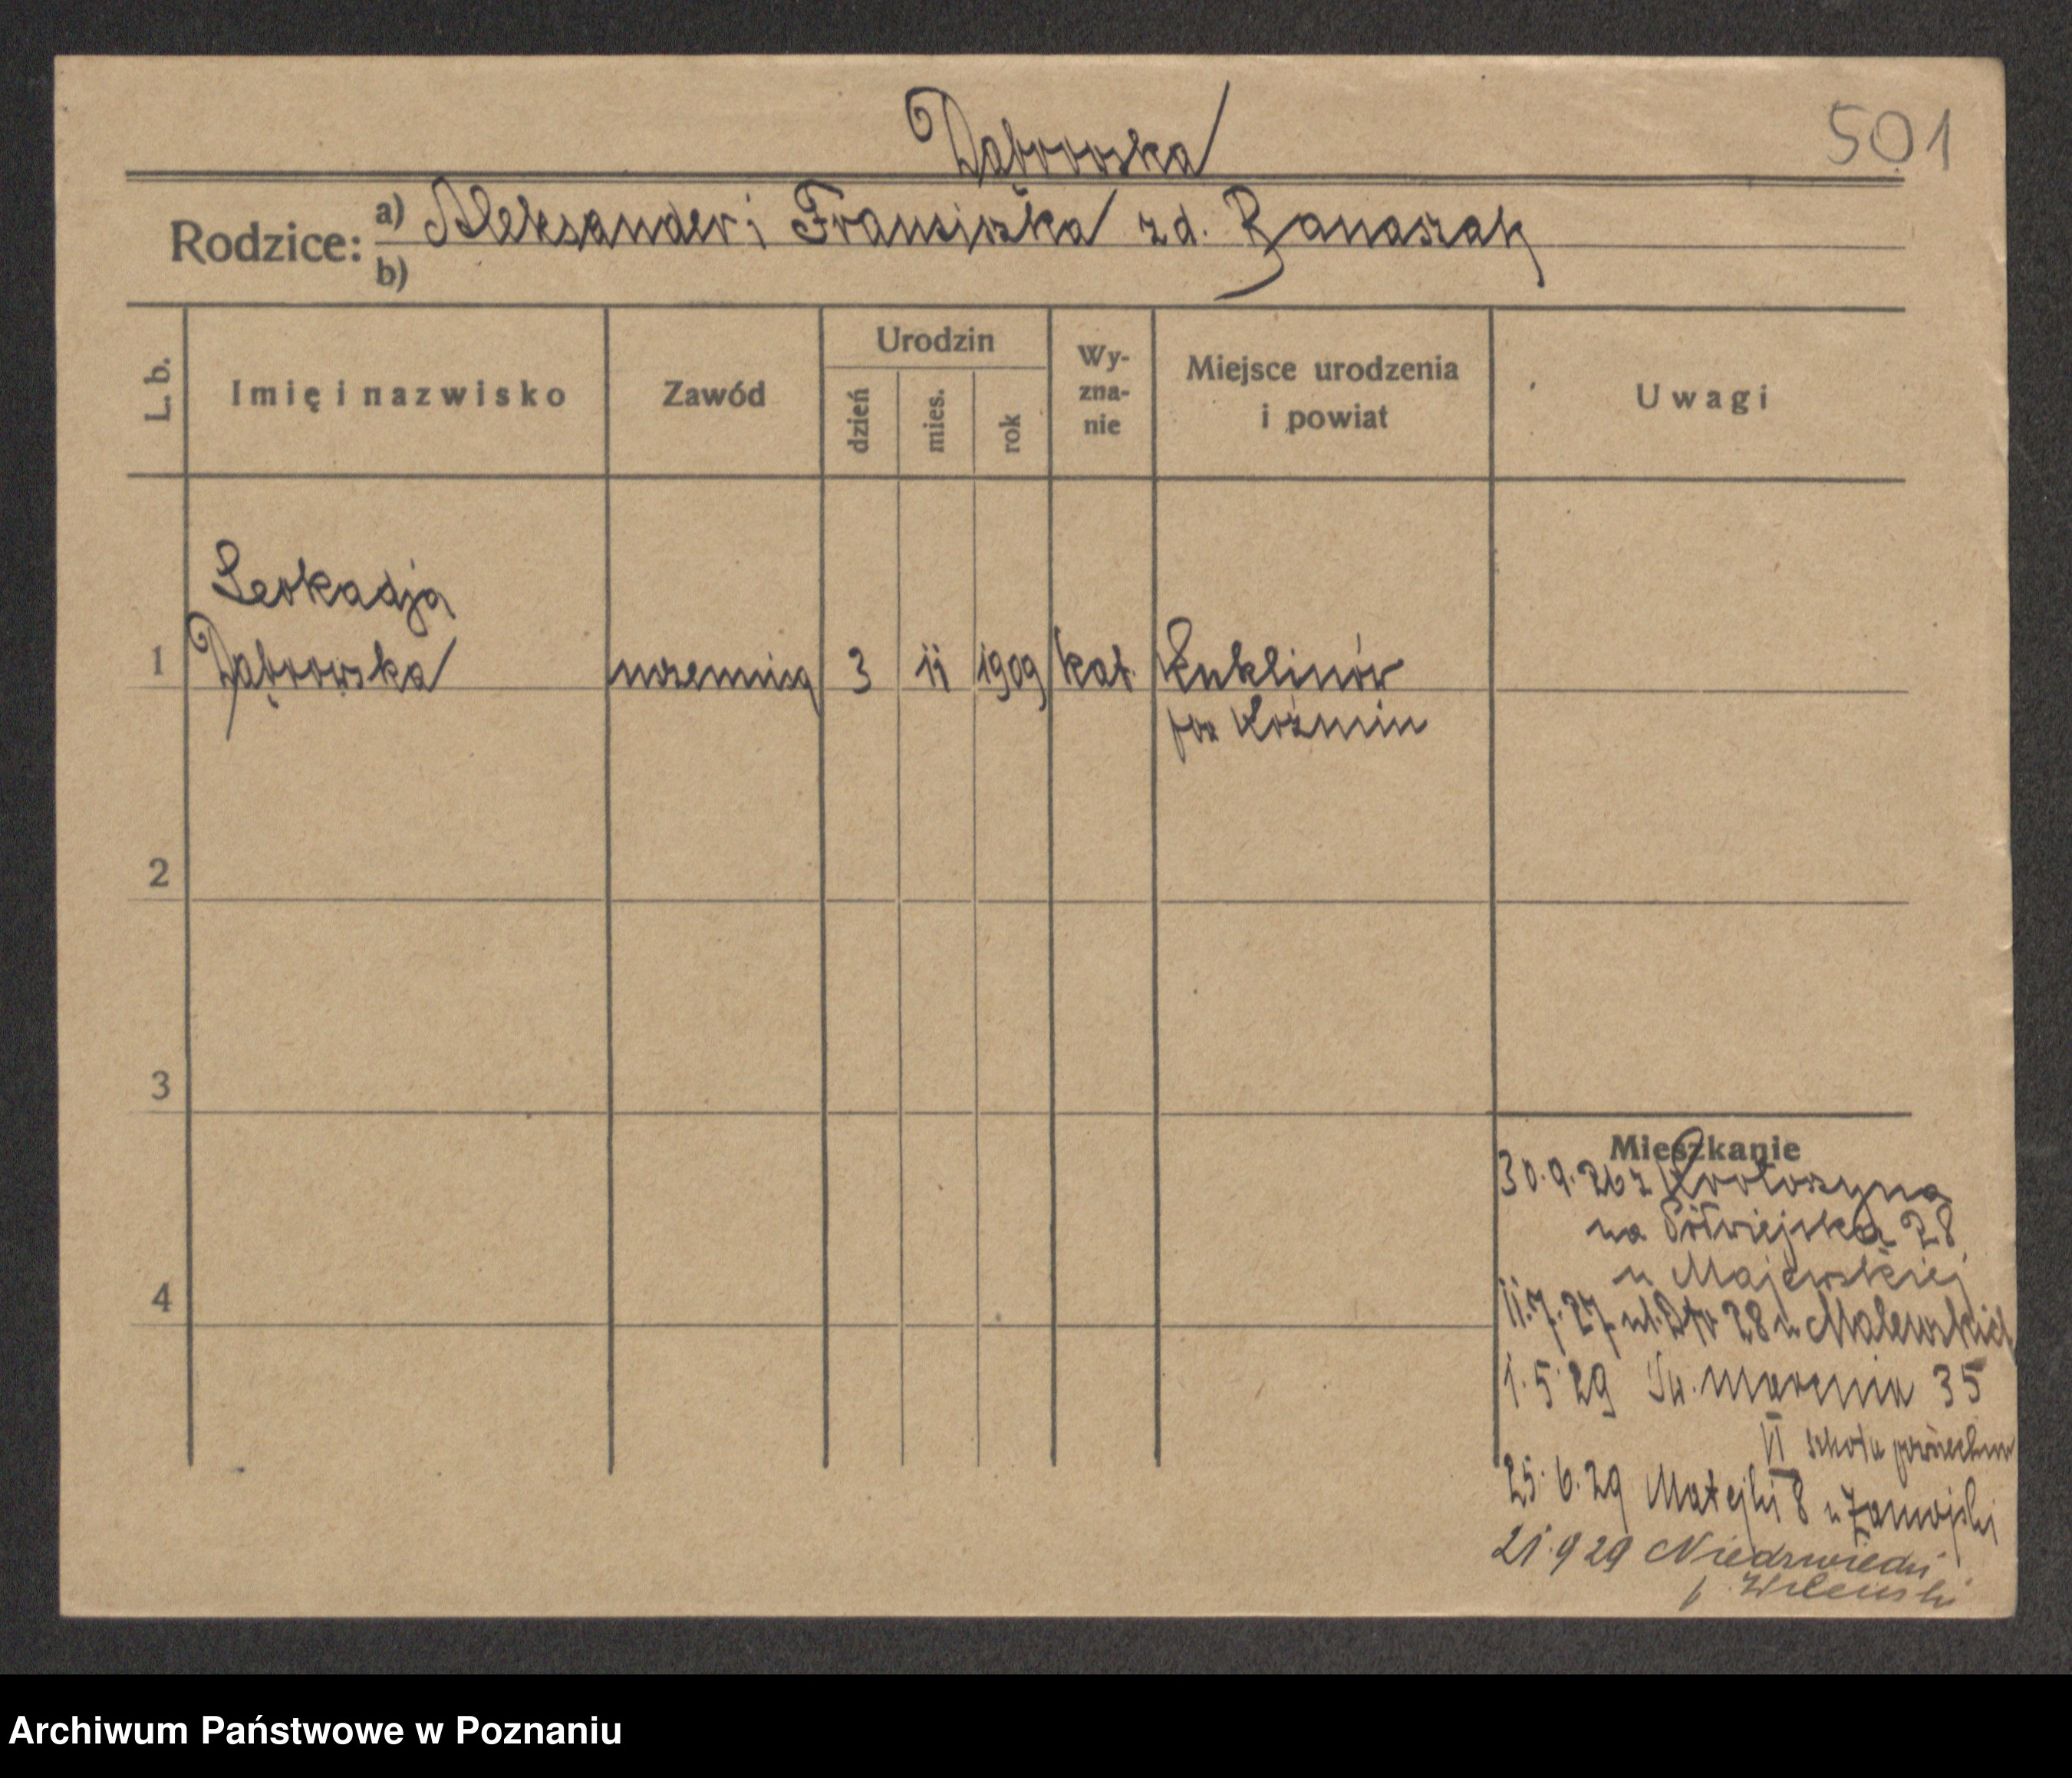 Dąbrowska
501
Rodzice: a) Aleksander i Franciszka zd. Banaszak
b)
L. b.
Imię i nazwisko
Zawód
Urodzin
dzień
mies.
rok
Wy-
zna-
nie
Miejsce urodzenia
i powiat
Uwagi
Leokadja
1 Dąbrowska uczennica 3 11 1909 kat. Lutklinów
pow Koźmin
2
3
4
Mieszkanie
30.9.26 z Krotoszyna
na Półwiejska 28
u Majewskiej
11.7.27 28 u Malewskich
1.5.29 Św. Marcina 35
VI szkoła powszechn
25.6.29 Matejki 8 u Zamojski
21.9 29 Niedzwiedzi
p. Wileński
Archiwum Państwowe w Poznaniu